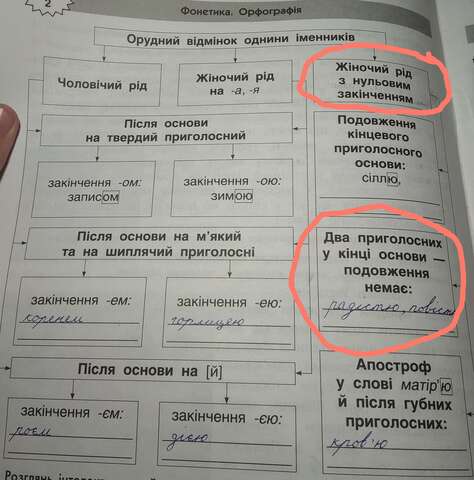 2
Фонетика. Орфографія
Орудний відмінок однини іменників
Чоловічий рід
Жіночий рід
на -а, -я
Жіночий рід
з нульовим
закінченням
Після основи
на твердий приголосний
Подовження
кінцевого
приголосного
основи:
сіллю,
закінчення -ом:
записом
закінчення -ою:
зимою
Після основи на м'який
та на шиплячий приголосні
Два приголосних
у кінці основи —
подовження
немає:
радістю,
закінчення -ем:
коренем
закінчення -ею:
горлицею
Після основи на [й]
Апостроф
у слові матір'ю
й після губних
приголосних:
кров'ю
закінчення -єм:
роєм
закінчення -єю:
дією